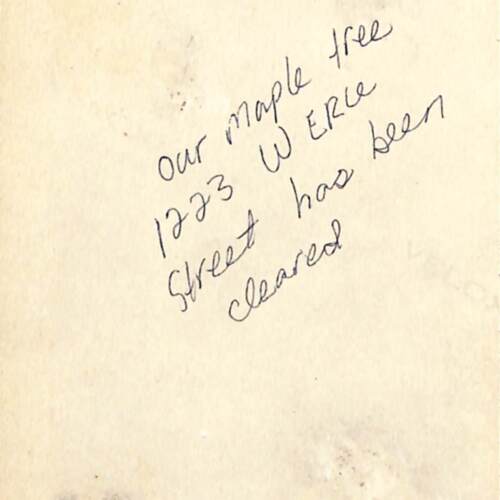 our maple tree
1223 W ERIE
Street has been
cleared